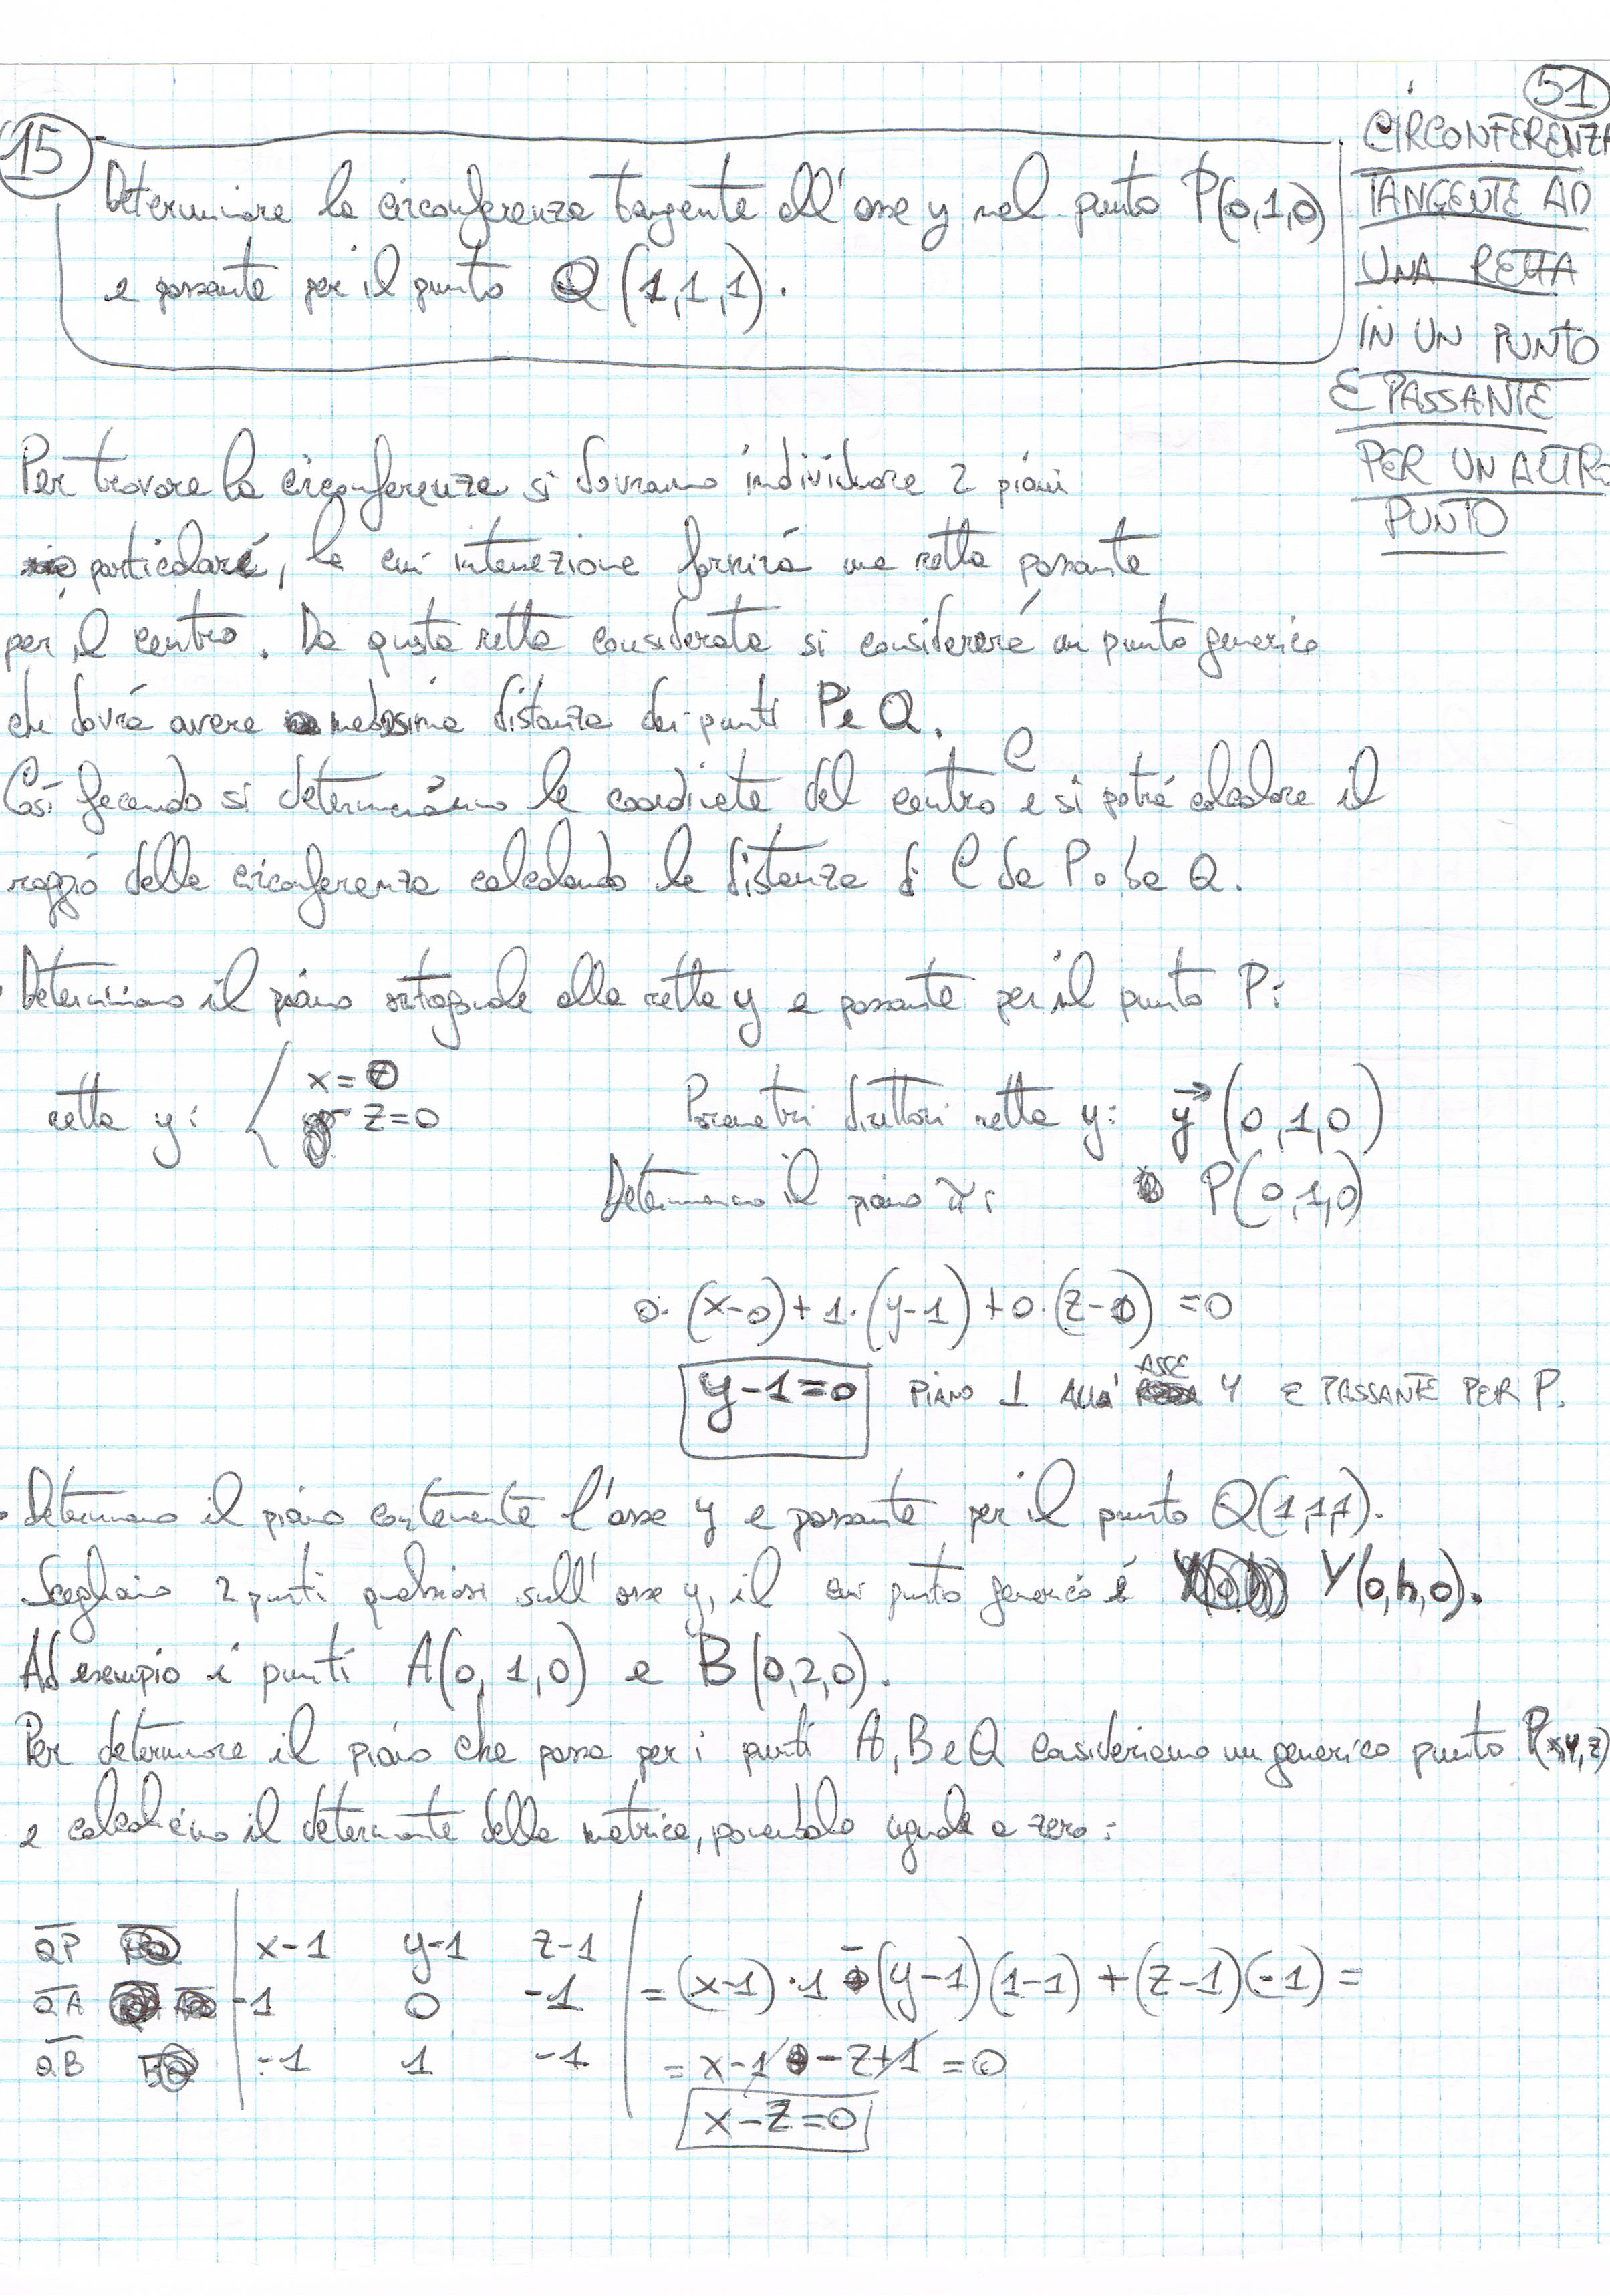 51
15
CIRCONFERENZA
TANGENTE AD
UNA RETTA
IN UN PUNTO
E PASSANTE
PER UN ALTRO
PUNTO
Determinare la circonferenza tangente all'asse y nel punto P(0,1,0)
e passante per il punto Q(1,1,1).
Per trovare la circonferenza si dovranno individuare 2 piani
particolari, la cui intersezione fornirà una retta passante
per il centro. Da questa retta considerata si considererà un punto generico
che dovrà avere medesima distanza dai punti P e Q.
Così facendo si determineranno le coordinate del centro C e si potrà calcolare il
raggio della circonferenza calcolando la distanza di C da P o da Q.
Determiniamo il piano ortogonale alla retta y e passante per il punto P:
retta y: { x=0
z=0
Parametri direttori retta y: y⃗ (0,1,0)
Determiniamo il piano π: P(0,1,0)
0·(x-0)+1·(y-1)+0·(z-0)=0
y-1=0 PIANO ⊥ ALL' ASSE Y E PASSANTE PER P.
Determiniamo il piano contenente l'asse y e passante per il punto Q(1,1,1).
Scegliamo 2 punti qualsiasi sull'asse y, il cui punto generico è Y(0,h,0).
Ad esempio i punti A(0,1,0) e B(0,2,0).
Per determinare il piano che passa per i punti A, B e Q consideriamo un generico punto P(x,y,z)
e calcoliamo il determinante della matrice, ponendolo uguale a zero:
QP | x-1 y-1 z-1 |
QA | -1 0 -1 | = (x-1)·1-(y-1)(1-1)+(z-1)(-1)=
QB | -1 1 -1 | = x-1-z+1=0
x-z=0